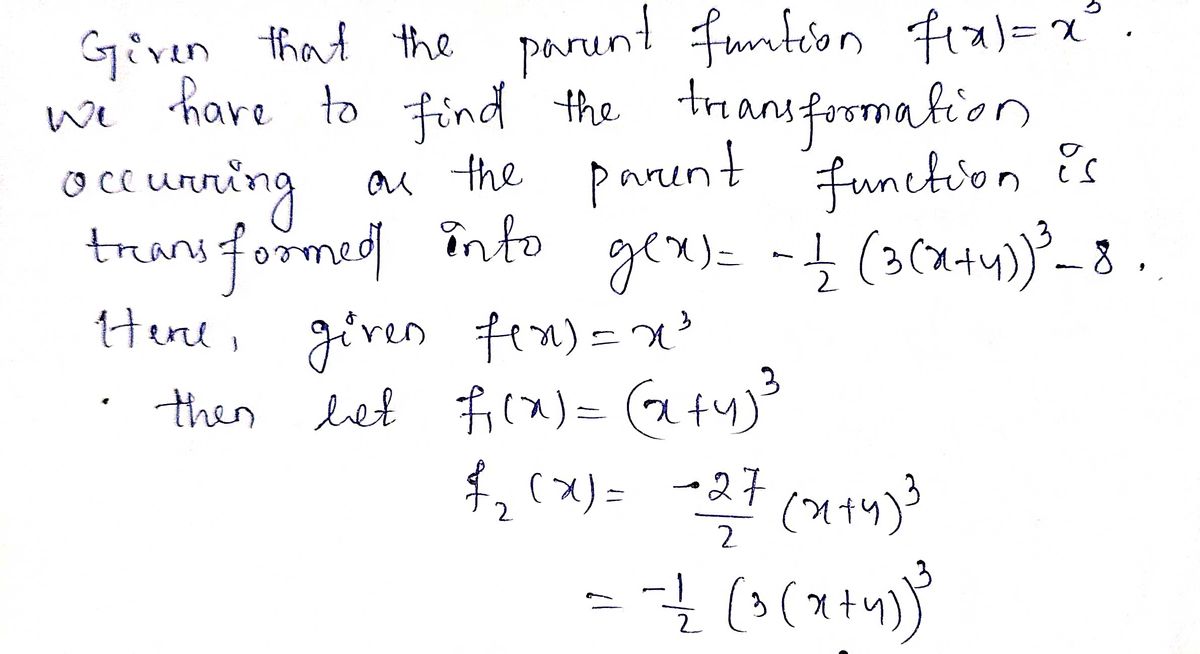 Given that the parent function f(x) = x³.
we have to find the transformation
occurring as the parent function is
transformed into g(x) = -1/2 (3(x+4))³ - 8.
Here, given f(x) = x³
· then let f₁(x) = (x+4)³
f₂(x) = -27/2 (x+4)³
= -1/2 (3(x+4))³